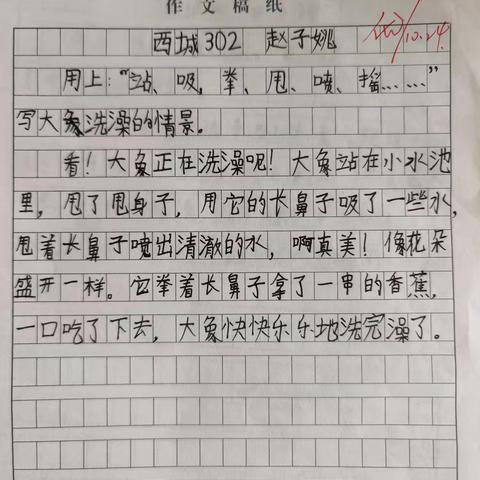 作文稿纸
西城302 赵子姚
优 10.24.
用上："站、吸，拳、甩、喷、摇……"
写大象洗澡的情景。
看！大象正在洗澡呢！大象站在小水池
里，甩了甩身子，用它的长鼻子吸了一些水，
甩着长鼻子喷出清澈的水，啊真美！像花朵
盛开一样。它举着长鼻子拿了一串的香蕉，
一口吃了下去，大象快快乐乐地洗完澡了。